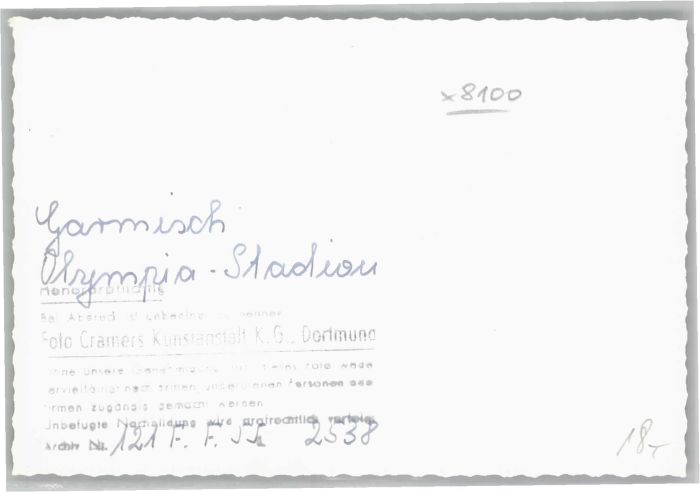 x8100
Garmisch
Olympia-Stadion
Honorarpflichtig
Bei Abdruck ist unbedingt zu nennen
Foto Cramers Kunstanstalt K.G., Dortmund
Ohne unsere Genehmigung darf dieses Foto weder
vervielfältigt noch dritten, unberufenen Personen oder
Firmen zugängig gemacht werden
Unbefugte Nachbildung wird strafrechtlich verfolgt
Archiv Nr. 121 F. F. 2538
18,-